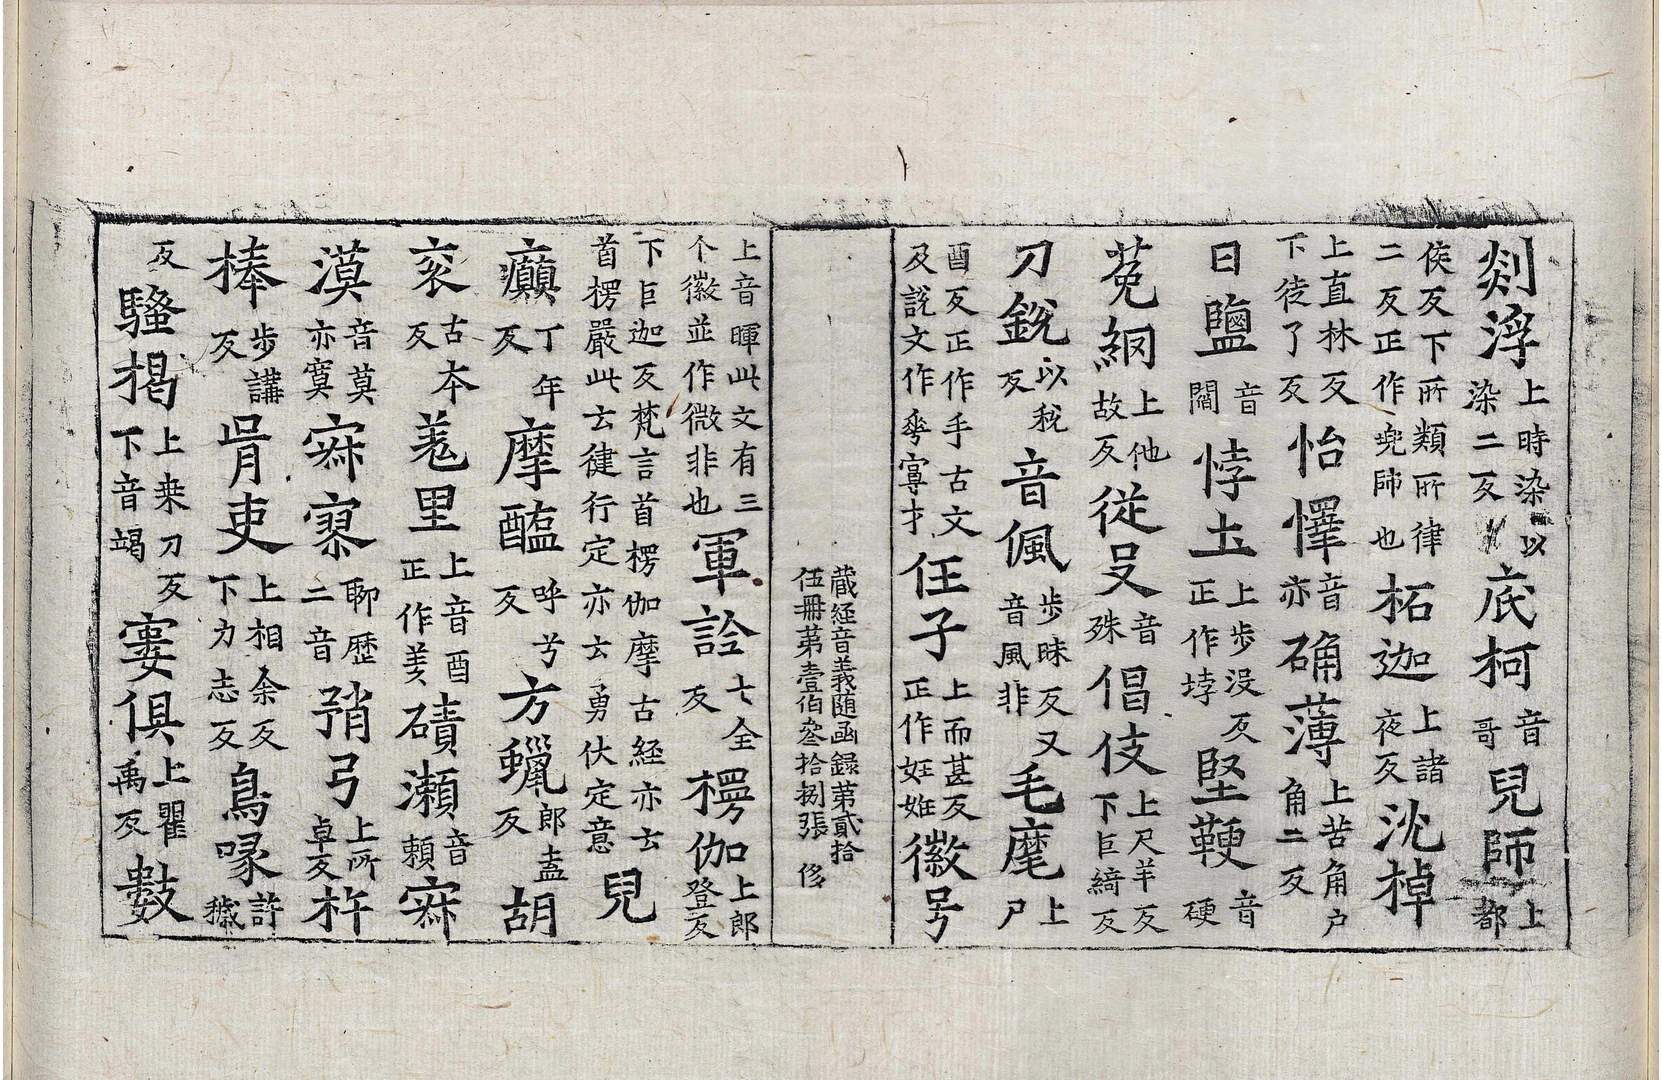 剡浮上時染以染二反底柯音哥兒師上都
侯反下所類所律二反正作兜師也柘迦上諸夜反沈棹
上直林反下徒了反怡懌音亦确薄上苦角户角二反
曰鹽音閻悖圡上步没反正作㘷堅鞕音硬
菟綗上他故反從殳音殊倡伎上尺羊反下巨綺反
刀銳以稅反音偑步昧反又音風非毛麾上尸
酉反正作手古文及說文作𠂹寧才任子上而甚反正作妊姙徽号
藏経音義随函録第貳拾伍冊第壹伯叄拾捌張 侈
上音暉此文有三个徽並作微非也軍詅七全反楞伽上郎登反
下巨迦反梵言首楞伽摩古経亦云首楞嚴此云健行定亦云勇伏定意兒
癲丁年反摩醯呼兮反方蠟郎盍反胡
衮古本反羑里上音酉正作羑磧瀬音頼寂
漠音莫亦寞寂寥聊歷二音弰弓上所卓反杵
棒步講反胥吏上相余反下力志反鳥喙許穢
反騷揭上桒刀反下音竭寠俱上瞿禹反數